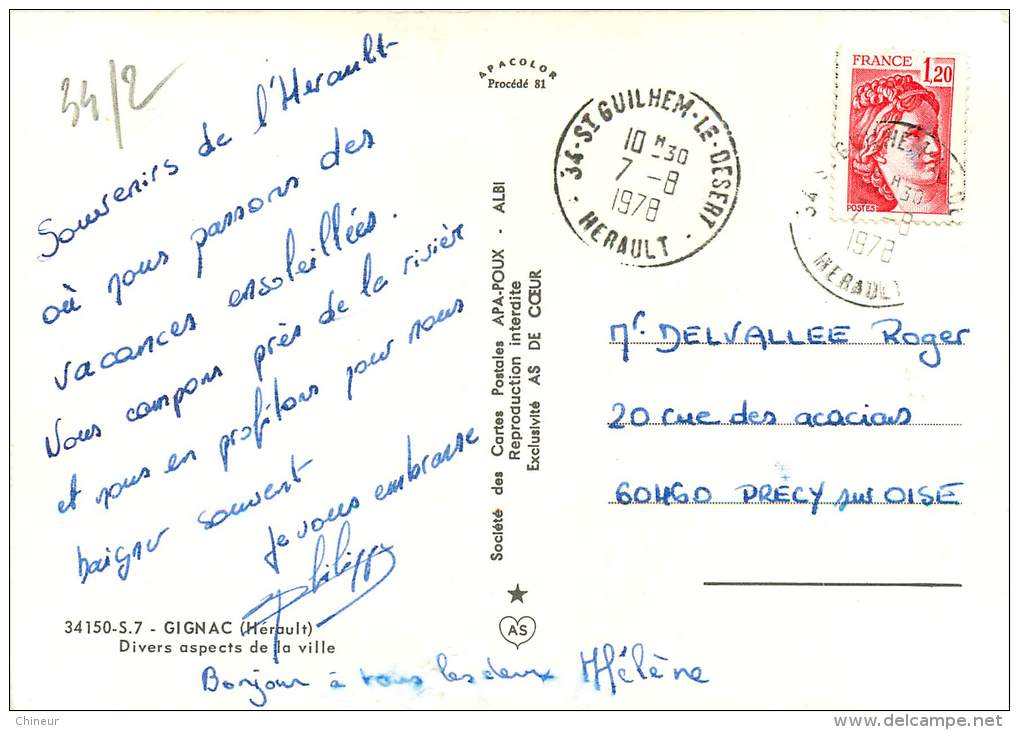 34/2
Souvenirs de l'Herault
où nous passons des
vacances ensoleillées.
Nous campons près de la rivière
et nous en profitons pour nous
baigner souvent
Je vous embrasse
Philippe
34150-S.7 - GIGNAC (Hérault)
Divers aspects de la ville
Bonjour à vous les deux Hélène
APACOLOR
Procédé 81
Société des Cartes Postales APA-POUX - ALBI
Reproduction interdite
Exclusivité AS DE CŒUR
AS
34-ST GUILHEM-LE-DESERT
10 H 30
7 -8
1978
HERAULT
FRANCE 1,20
POSTES
H30
-8
1978
HERAULT
Mr DELVALLEE Roger
20 rue des acacias
60460 PRÉCY sur OISE
Chineur
delcampe.net